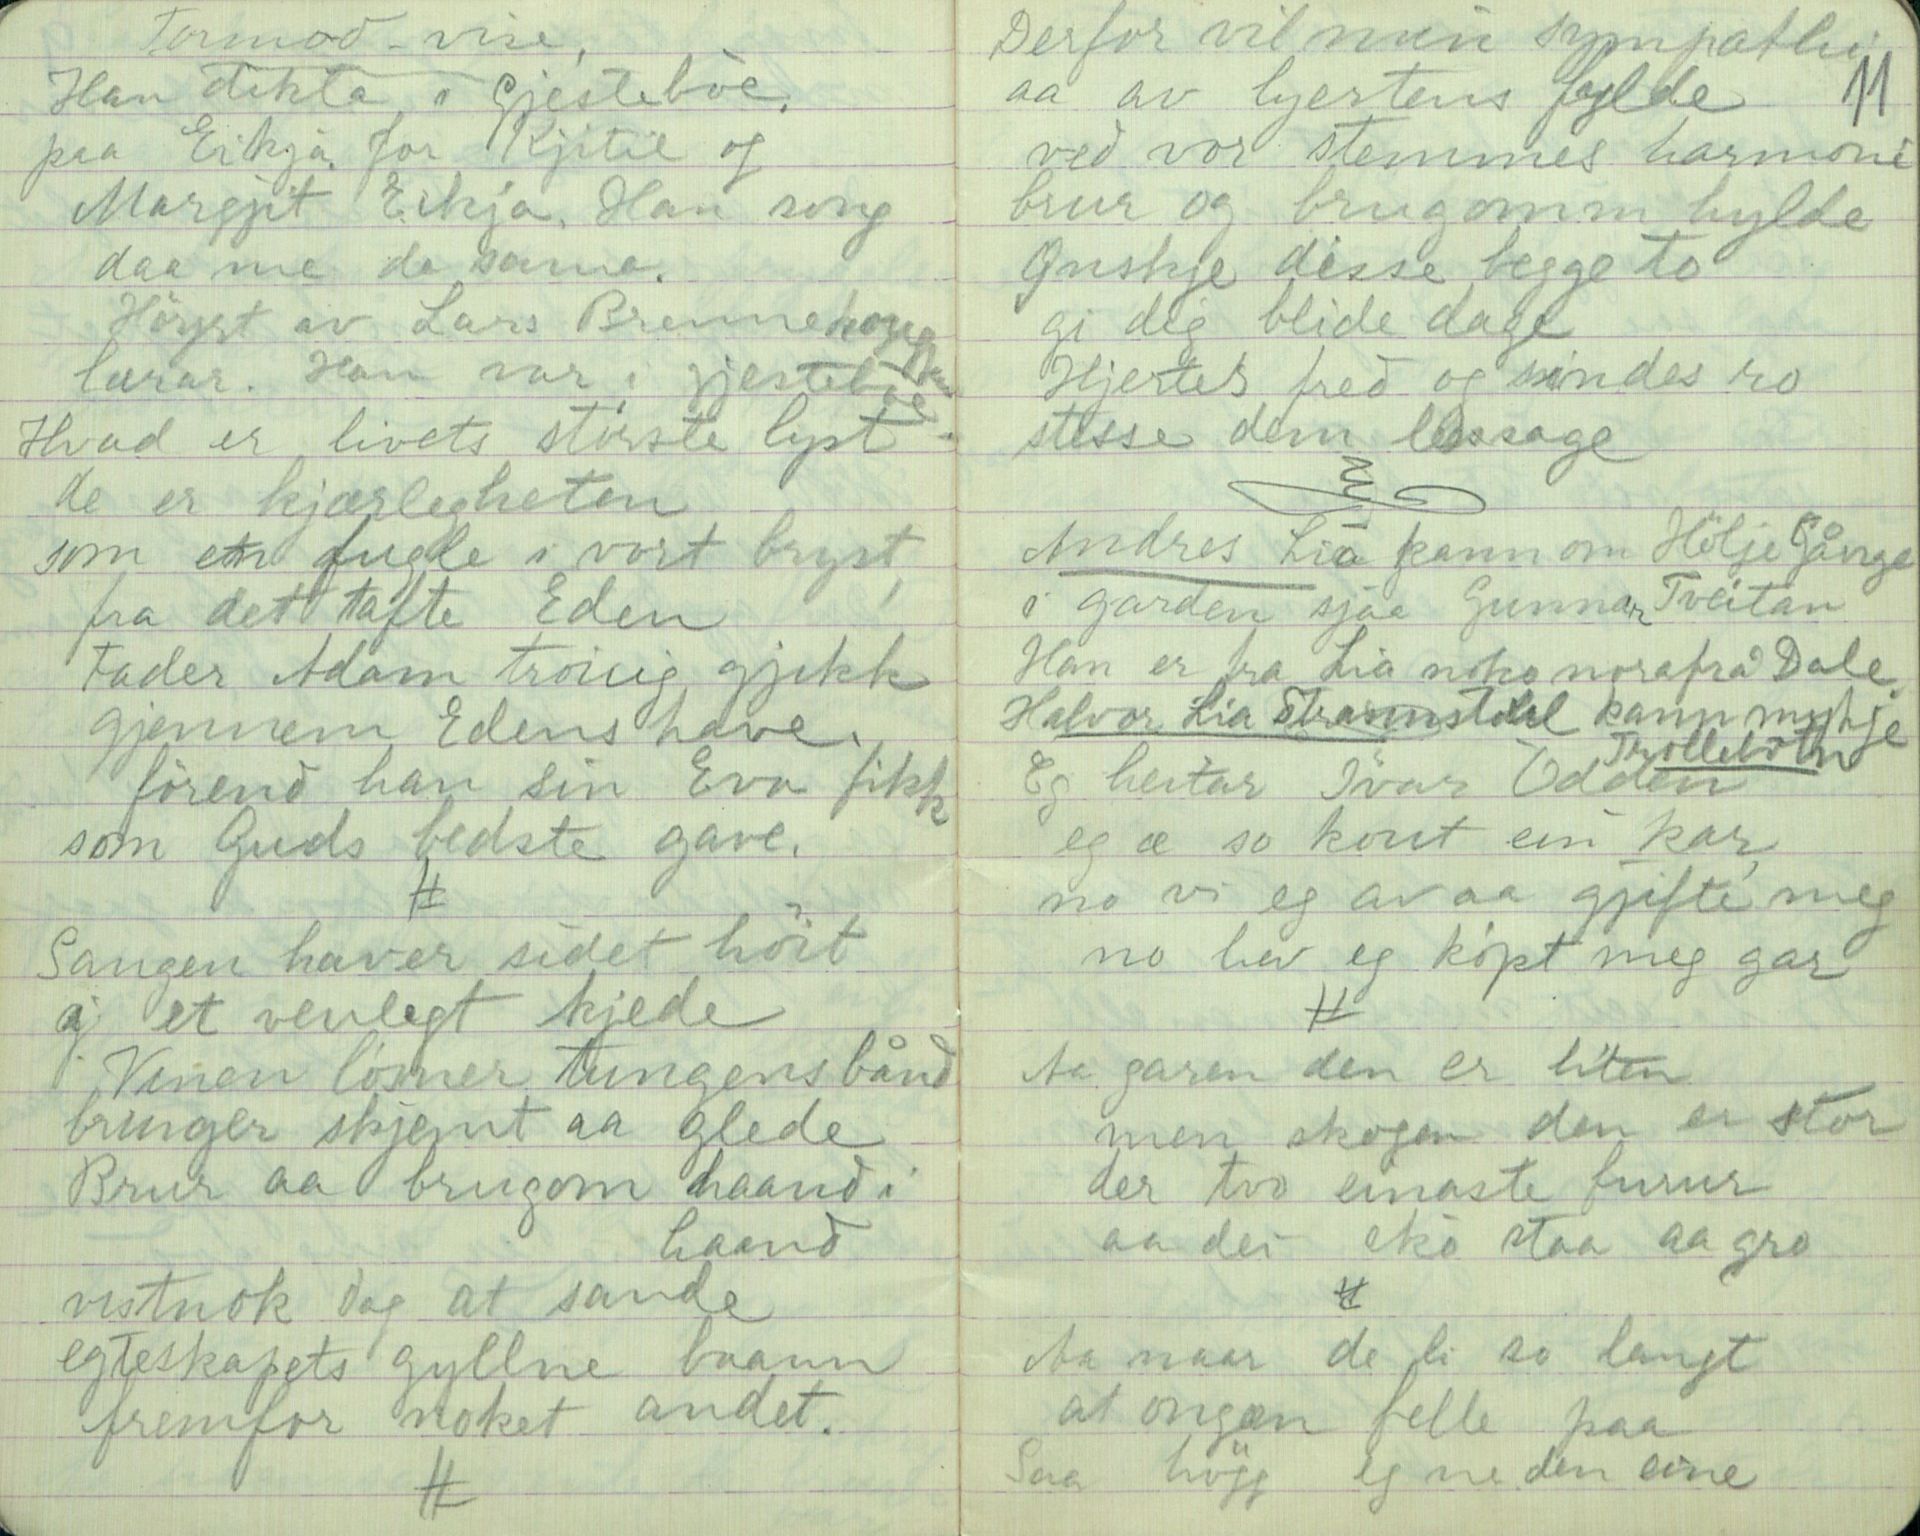 Tormod-vise,
Han dikta i gjesteböe,
paa Eikjå for Kjitil og
Margjit Eikja. Han song
daa me de sama.
Höyrt av Lars Brennehaug
lærar. Han var i gjesteböe
Hvad er livets störste lyst
de er kjærlegheten
som en fugle i vort bryst,
fra det tafte Eden
Fader Adam troiig gjikk
gjennem Edens have.
förend han sin Eva fikk
som Guds bedste gave.
#
Sangen haver sidet höit
i et venlegt kjede
Vinen lösner tungens bånd
bringer skjemt aa glede
Brur aa brugom haand i
haand
vistnok dog at sande
egteskapets gyllne baann
fremfor noket andet.
#
11
Derfor vil min sympathi
aa av hjertens fylde
ved vor stemmes harmoni
brur og brugomm hylde
Ønskje disse begge to
gi dig blide dage
Hjertes fred og sindes ro
stesse dem lessage
Andres Lia kann om Hölje Gånge
i garden sjaa Gunnar Tveitan
Han er fra Lia noko norafrå Dale.
Halvor Lia Strannstdal kann mykje
Trollebotn
Eg heitar Ivar Odden
eg æ so kout ein kar,
no vi eg av aa gjifte meg
no hev eg köpt meg gar
#
Aa garen den er liten
men skogen den er stor
der tvo einaste furur
aa dei skö staa aa gro
#
Aa naar de li so langt
at ongæn felle paa
Saa högg eg ne den eine